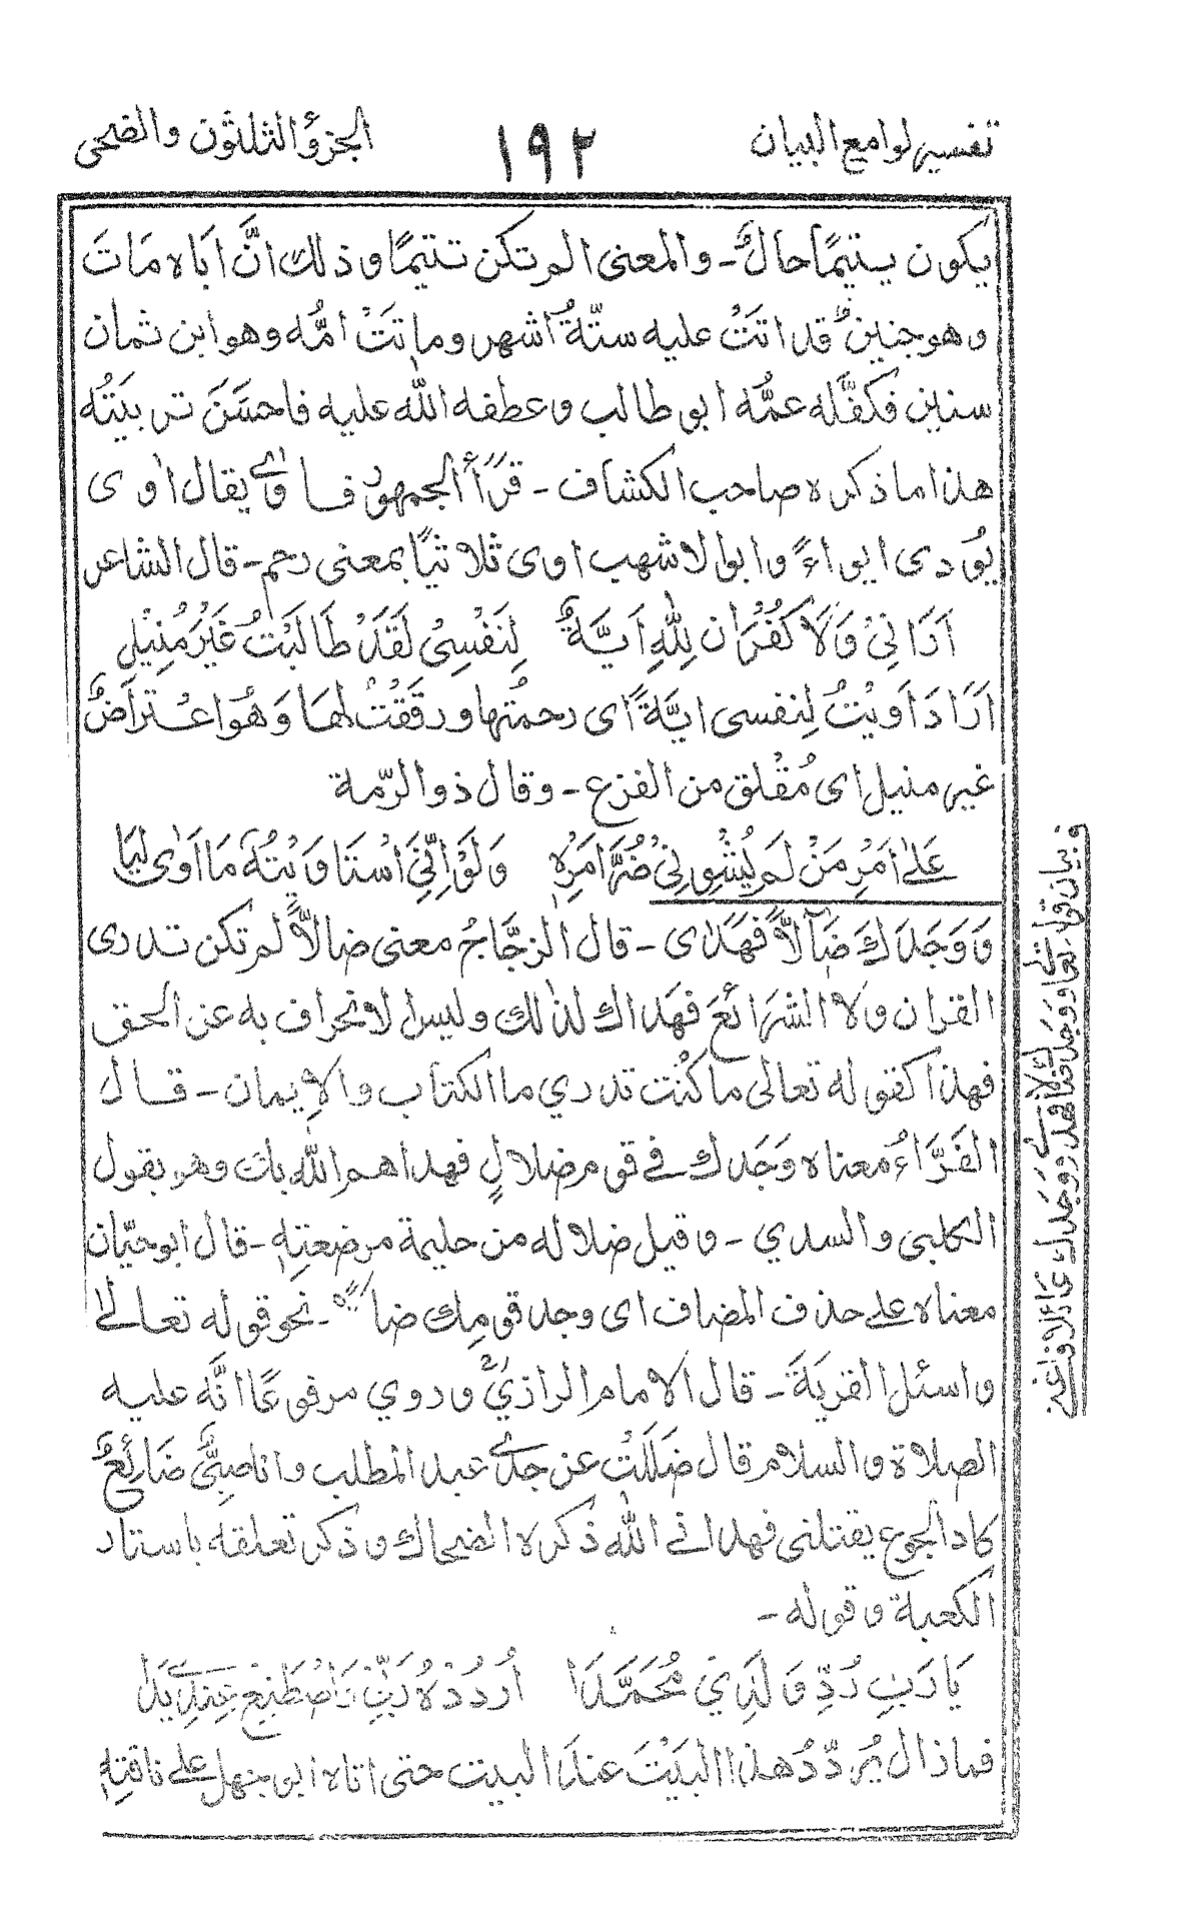 تفسير لوامع البيان ١٩٢ الجزؤ الثلثون والضحى
يكون يتيمًا حالٌ - والمعنى الم تكن تتيمًا وذلك انَّ اباه مَاتَ
وهو جنينٌ قد اتتْ عليه ستّةُ اشهر وماتتْ امُّه وهو ابن ثمان
سنين فكفَّله عمُّه ابو طالب وعطفه اللّٰه عليه فاحسَنَ تربيتُه
هذا ما ذكره صاحب الكشاف - قرَأ الجمهور فاٰوٰى يقال اٰوى
يُؤدى ايواءً وابوالاشهب اوى ثلاثيًا بمعنى رحم - قال الشاعر
اَرَانِىْ وَلَا كُفْرَانِ لِلّٰهِ اَيَّةٌ لِنَفْسِىْ لَقَدْ طَالَبْتُ غَيْرَ مُنِيْلِ
اَرَادَ اَوَيْتُ لِنفسى ايَّةً اى رحمتُها ورقَقْتُ لهَا وَهُوَ اعْتراَضٌ
غير منيل اى مُقْلق من الفزع - وقال ذو الرّمة
عَلٰى اَمْرِ مَنْ لَم يُشْوِنِىْ ضُرَّ اَمْرِهٖ وَلَوْ اِنِّىَ اسْتَاوَيْتُهٗ مَا اَوٰى لِيَا
وَوَجَدَكَ ضَآلاًّ فَهَدٰى - قال الزجَّاجُ معنى ضالاًّ لم تكن تدرى
القران ولا الشَرَائعَ فهَداك لذٰلك وليس لانحراف به عن الحق
فهذا كقوله تعالى ما كُنْت تدري ما الكتاب والإيمان - قال
الفَرَّاءُ معناه وَجَدك فے قوم ضلالٍ فهداهم اللّٰه بك وهو بقول
الكلبى والسدي - وقيل ضلاله من حليمة مرضعتِهٖ - قال ابوحيّان
معناه علے حذف المضاف اى وجد قومِك ضا - نحو قوله تعالےٰ
واسئل القريَةَ - قال الامام الرازيؒ وروي مرفوعًا انَّه عليه
الصلاة والسلام قال ضَلَلتْ عن جدّے عبد المطلب وانا صبىٌّ ضَائِعٌ
كاد الجوع يقتلنى فهدانے اللّٰه ذكره الضحاك وذكر تعلقه باستار
الكعبة وقوله -
يَا رَبِّ رُدَّ وَلَدِيْ مُحَمَّدَا اُرْدُدْهُ رَبِّىْ وَاصْطَنِعْ عِنْدِے يَدَا
فماذال يُردّدُ هذا البَيْتَ عندَ البيت حتى اتاه ابى جهل علے ناقتِهٖ
فے بيان قوله تعالے ووجدك ضالا فهدے ووجدك عائلا فاغنے